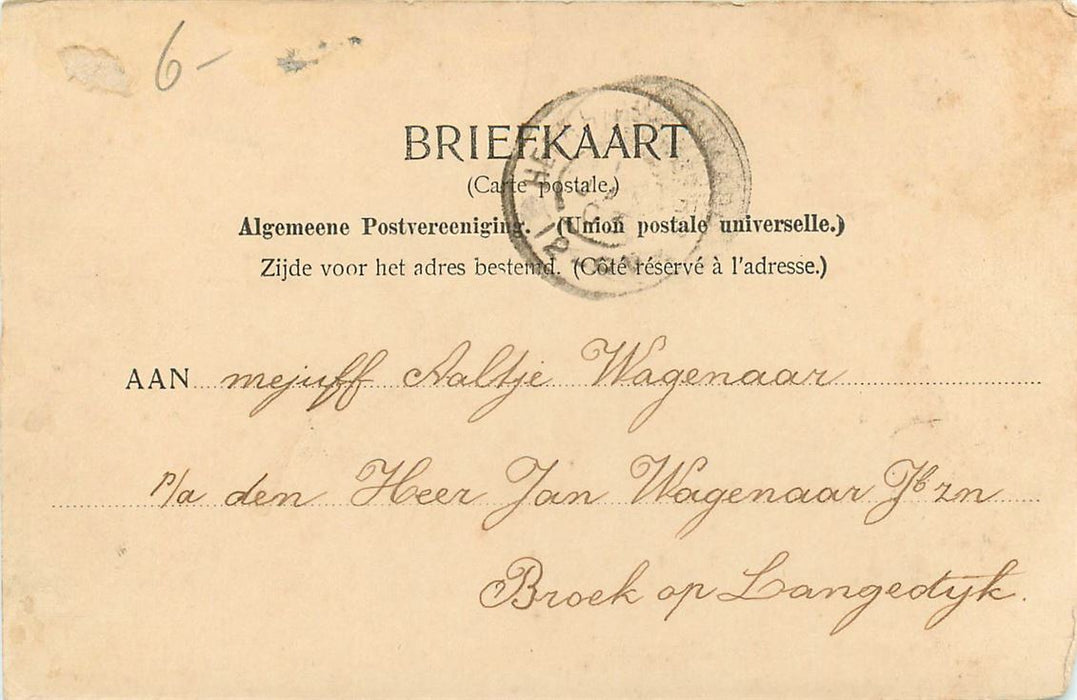 6-
BRIEFKAART
(Carte postale.)
Algemeene Postvereeniging. (Union postale universelle.)
Zijde voor het adres bestemd. (Côté réservé à l'adresse.)
AAN mejuff Aaltje Wagenaar
p/a den Heer Jan Wagenaar Jb zn
Broek op Langedijk.